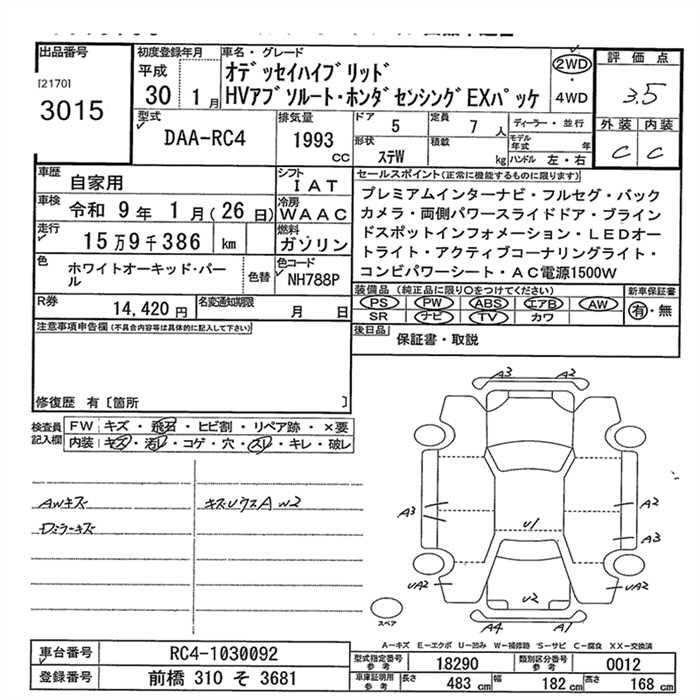 出品番号
[2170]
3015
初度登録年月
平成
30 1月
車名・グレード
オデッセイハイブリッド
HVアブソルート・ホンダセンシングEXパッケ
2WD
・
4WD
評価点
3.5
外装 内装
C C
型式
DAA-RC4
排気量
1993
cc
ドア 5
定員 7人
ディーラー・並行
形状 ステW
積載 kg
モデル年式 年
ハンドル 左・右
車歴 自家用
シフト IAT
車検 令和 9年 1月(26日)
冷房 WAAC
走行 15万9千386 km
燃料 ガソリン
色 ホワイトオーキッド・パール
色替
色コード NH788P
R券 14,420円
名変通知期限 月 日
セールスポイント(正常に機能するものに限ります)
プレミアムインターナビ・フルセグ・バック
カメラ・両側パワースライドドア・ブライン
ドスポットインフォメーション・LEDオー
トライト・アクティブコーナリングライト・
コンビパワーシート・AC電源1500W
装備品(純正品に限り〇をつけてください)
新車保証書
PS PW ABS エアB AW
SR ナビ TV カワ
有・無
後日品 保証書・取説
注意事項申告欄(不具合内容等は具体的に記入して下さい)
修復歴 有[箇所 ]
検査員
記入欄
FW キズ・飛石・ヒビ割・リペア跡・×要
内装 キズ・汚レ・コゲ・穴・スレ・キレ・破レ
AWキズ
ドミラーキズ
キズUウスA W2
A3 A2
A3
A2
A3
U1
UA2
UA2
U2
A4 A1
スペア
A-キズ E-エクボ U-凹み W-補修跡 S-サビ C-腐食 XX-交換済
車台番号 RC4-1030092
登録番号 前橋 310 そ 3681
型式指定番号 参考 18290
類別区分番号 参考 0012
車庫証明用 参考
長さ 483 cm
幅 182 cm
高さ 168 cm